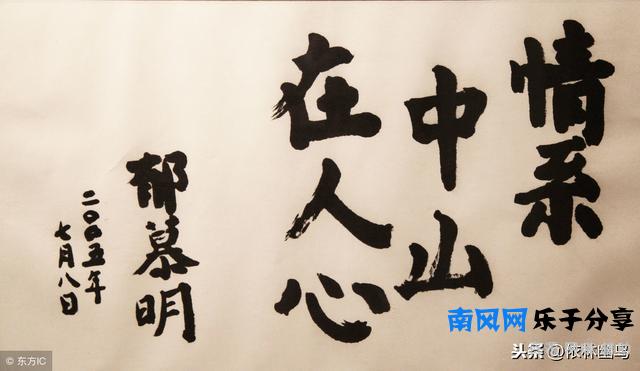 情系
中山
在人心
郁慕明
二〇〇五年
七月八日
南风网 乐子分享
头条 @依林幽鸟
© 东方IC